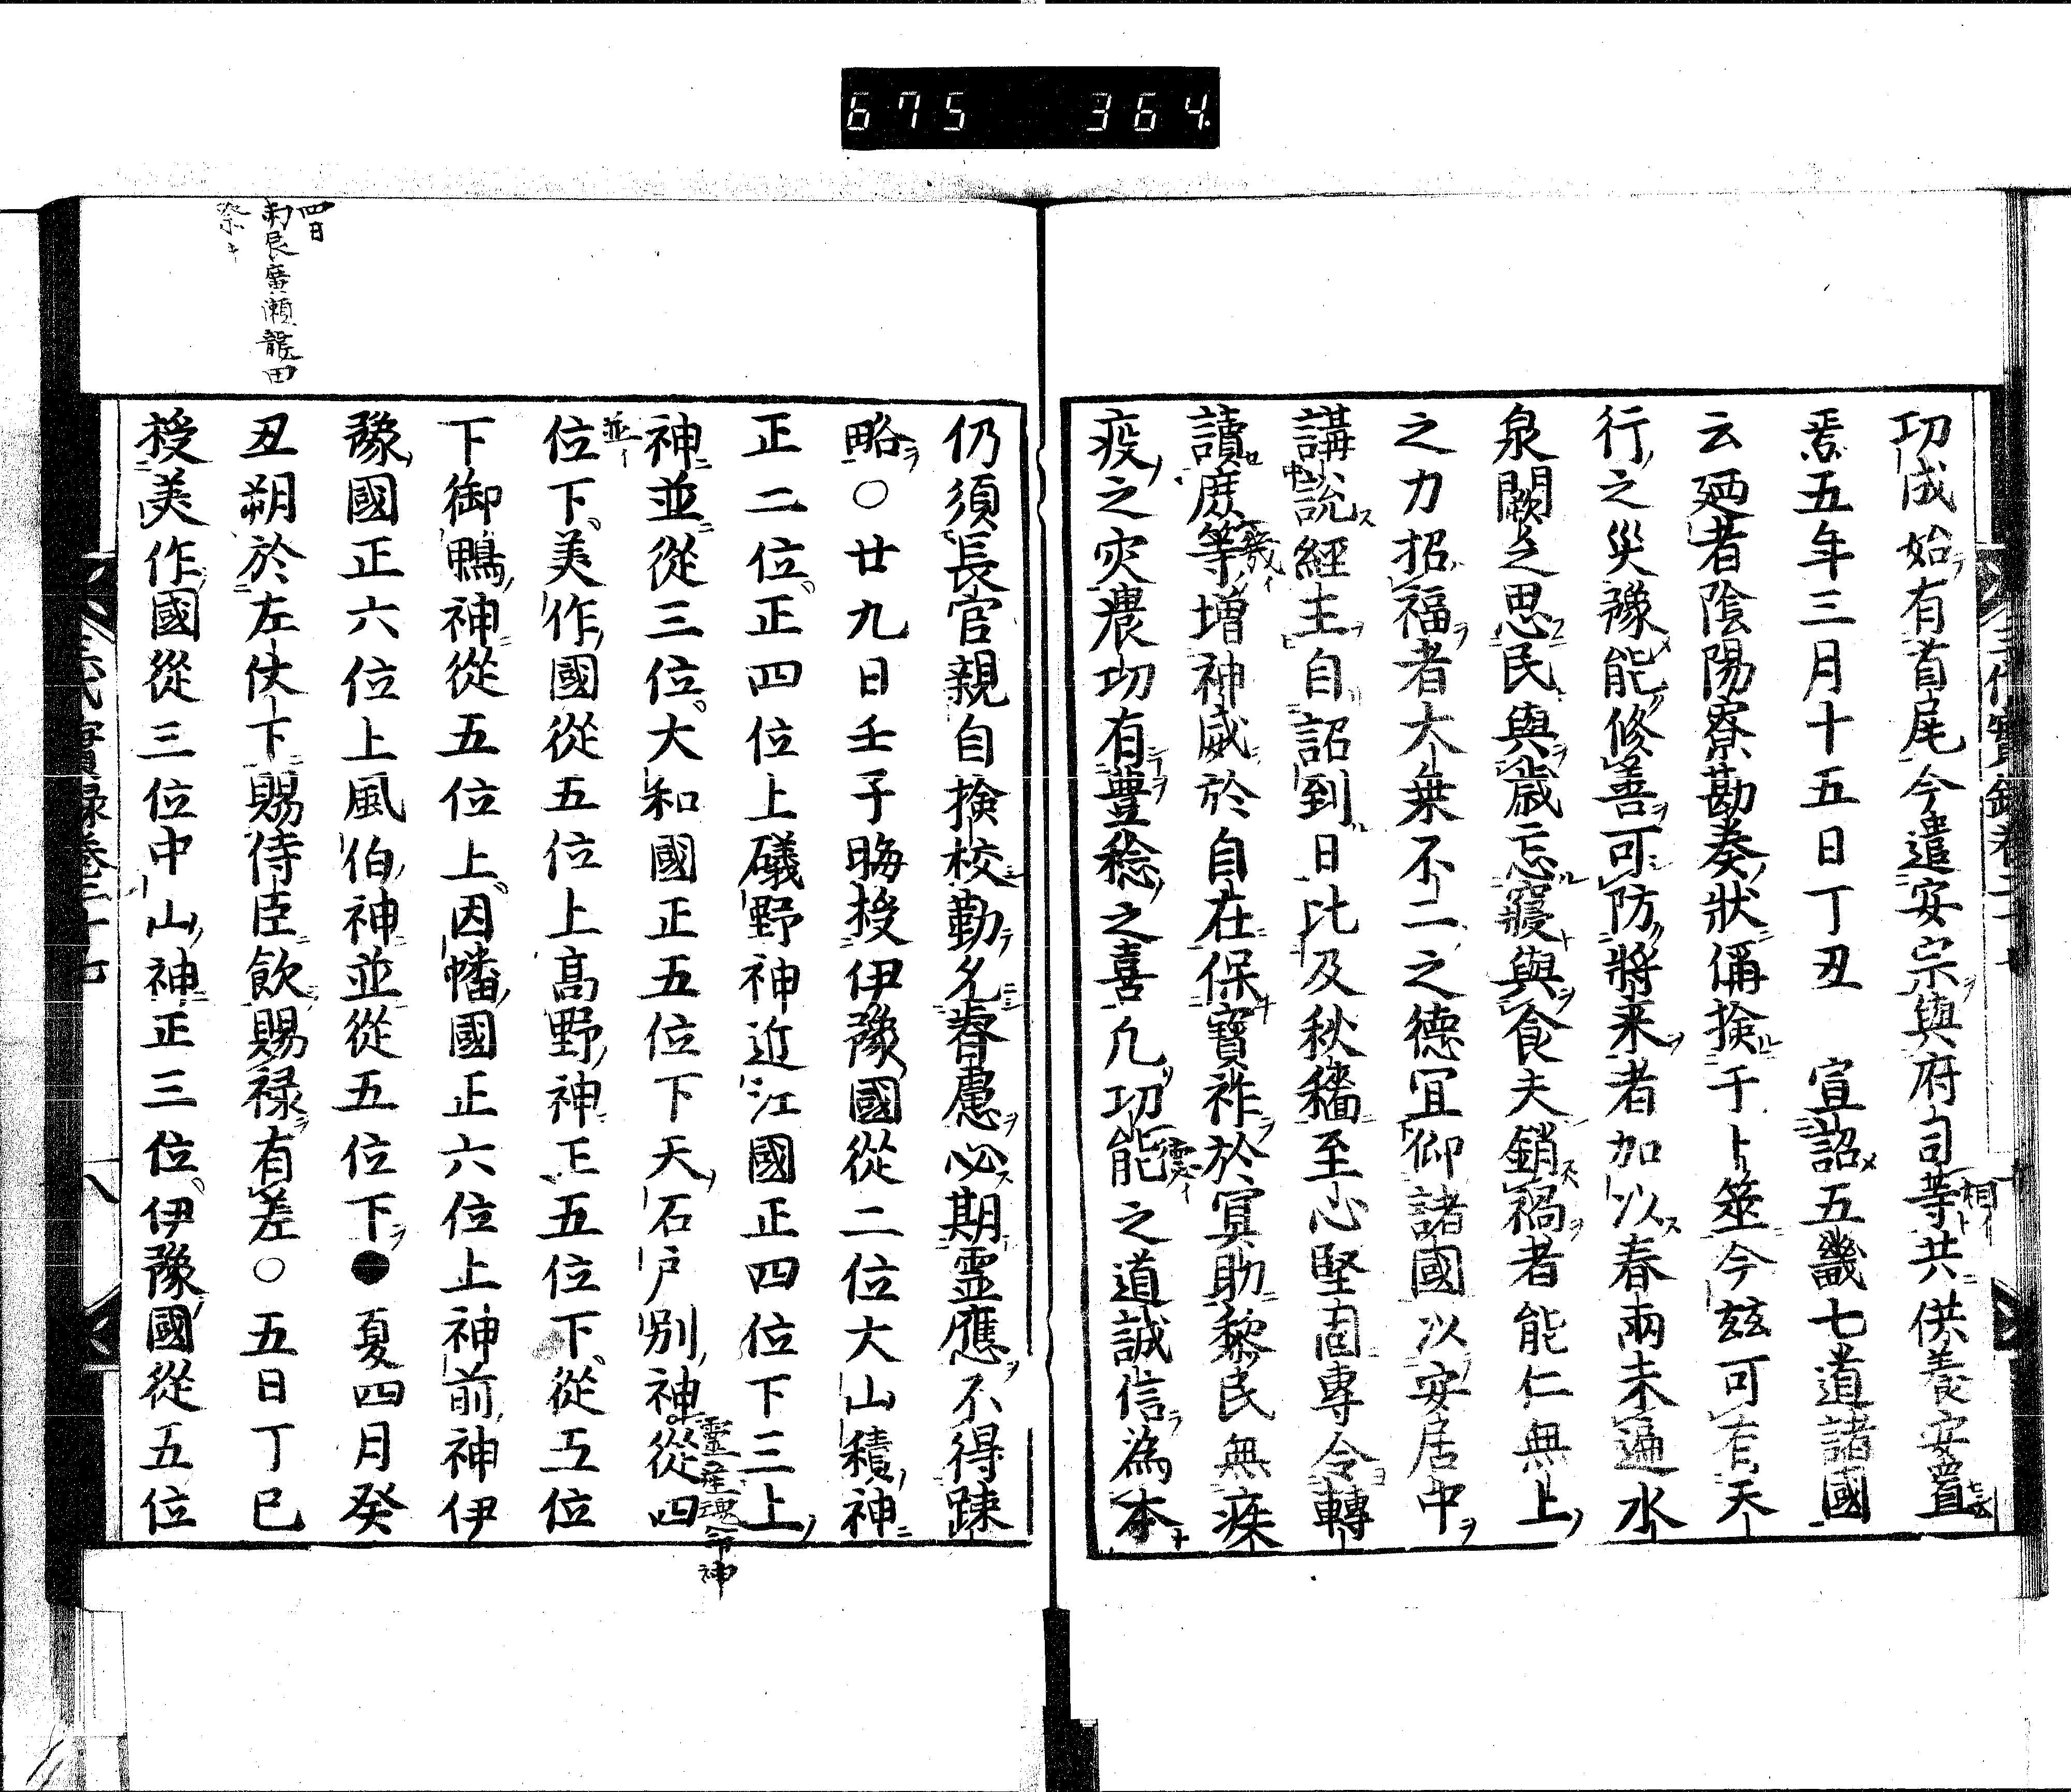 675 364
功成始有首尾今遣安宗與府司等共供養安置
焉五年三月十五日丁丑 宣詔五畿七道諸國
云廼者陰陽寮勘奏狀偁撿于卜筮今玆可有天
行之災豫能修善可防將来者加以春雨未遍水
泉闕之思民與歳忘寢與食夫銷禍者能仁無上
之力招福者大乗不二之德冝仰諸國以安居中
講說經主自詔到日比及秋穡至心堅固專令轉
讀庻等增神威於自在保寳祚於冥助黎民無疾
疫之灾農功有豊稔之喜凢功能之道誠信為本
仍須長官親自撿校勤名春慮必期霊應不得踈
略○廿九日壬子晦授伊豫國從二位大山積神
正二位正四位上礒野神近江國正四位下三上
神並從三位大和國正五位下天石戸別神從四
位下美作國從五位上高野神正五位下從五位
下御鴨神從五位上因幡國正六位上神前神伊
豫國正六位上風伯神並從五位下●夏四月癸
丑朔於左仗下賜侍臣飲賜禄有差○五日丁巳
授美作國從三位中山神正三位伊豫國從五位
四日
廣瀬龍田
祭
霊産魂命神
三代實録卷二十七
八